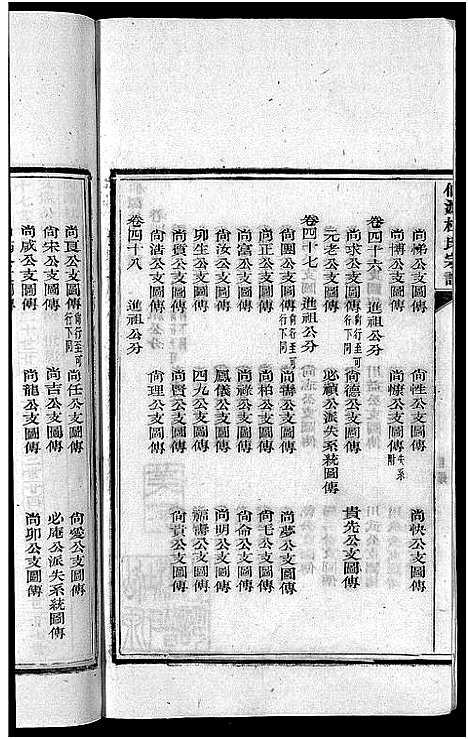 尚梯公支圖傳 尚性公支圖傳 尚快公支圖傳
尚博公支圖傳 尚慷公支圖傳失系附
卷四十六 進祖公分
尚求公支圖傳尚行至可行下同 尚德公支圖傳 貴先公支圖傳
元老公支圖傳 必禎公派失系統圖傳
卷四十七 進祖公分
尚團公支圖傳尚行至可行下同 尚疇公支圖傳 尚夢公支圖傳
尚正公支圖傳 尚柏公支圖傳 尚毛公支圖傳
尚富公支圖傳 尚祿公支圖傳 尚侖公支圖傳
尚汝公支圖傳 鳳儀公支圖傳 尚明公支圖傳
卯生公支圖傳 四九公支圖傳 公支圖傳
尚賓公支圖傳 尚賢公支圖傳 尚貢公支圖傳
尚浩公支圖傳 尚理公支圖傳
卷四十八 進祖公分
尚頁公支圖傳尚行至可行下同 尚任公支圖傳 尚愛公支圖傳
尚宋公支圖傳 尚吉公支圖傳 必庵公派失系統圖傳
尚咸公支圖傳 尚龍公支圖傳 尚卯公支圖傳